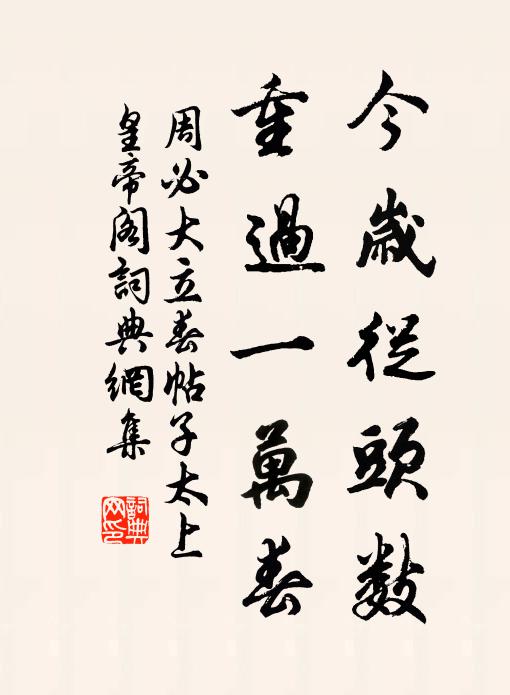 今歲從頭數
重過一萬春
周必大立春帖子太上
皇帝閣詞典網集
詞典
网印